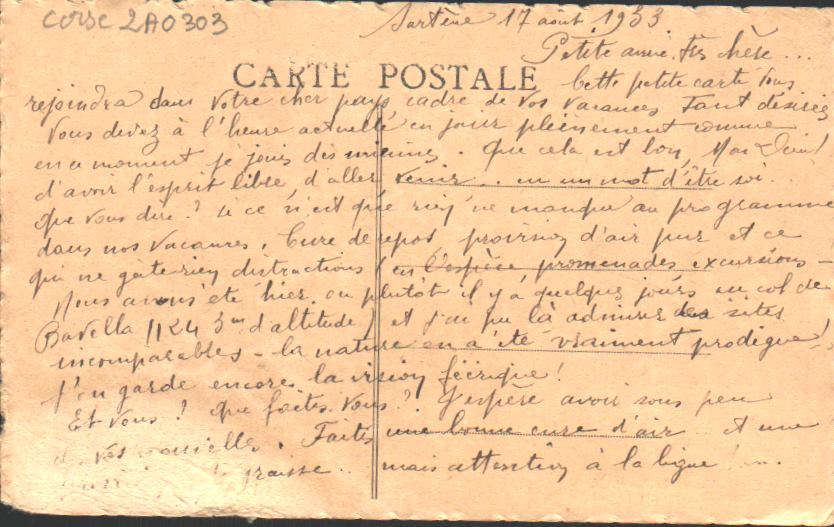 Corse 2A0303
Sartène 17 août 1933
Petite amie très chère...
CARTE POSTALE
Cette petite carte vous
rejoindra dans votre cher pays cadre de vos vacances tant désirées
Vous devez à l'heure actuelle en jouir pleinement comme
en ce moment je jouis des miennes. Que cela est bon, Mon Dieu!
d'avoir l'esprit libre, d'aller venir... en un mot d'être soi.
Que vous dire? si ce n'est que rien ne manque au programme
dans nos vacances. Cure de repos, provision d'air pur et ce
qui ne gâte rien distractions (en l'espèce promenades excursions -
Nous avons été hier ou plutôt il y a quelques jours au col de
Bavella (1243m d'altitude) et j'ai pu là admirer des sites
incomparables - la nature en a été vraiment prodigue!
J'en garde encore la vision féerique!
Et vous? Que faites-vous? J'espère avoir sous peu
de vos nouvelles. Faites une bonne cure d'air et une
graisse... mais attention à la ligne!...